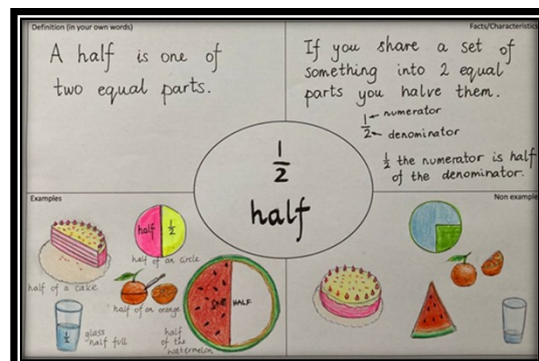 Definition (in your own words)
A half is one of
two equal parts.
Facts/Characteristics
If you share a set of
something into 2 equal
parts you halve them.
1/2
numerator
denominator
1/2 the numerator is half
of the denominator.
1/2
half
Examples
half of a cake
half
1/2
half of an circle
half of an orange
1/2
glass
half full
HALF
half
of the
watermelon
Non example